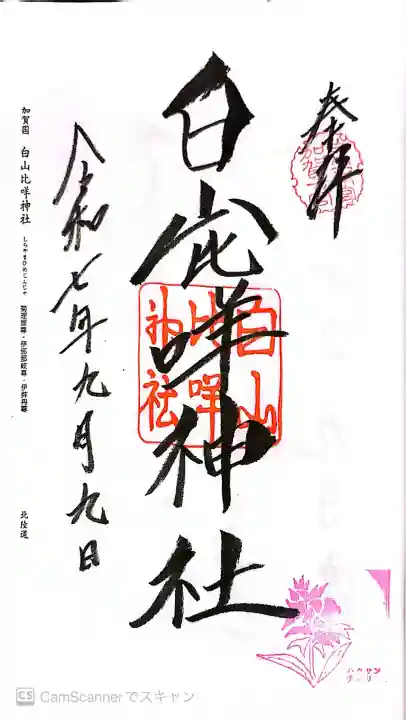 奉拝
白山比咩神社
白山
比咩
神社
令和七年九月九日
加賀国 白山比咩神社 しらやまひめじんじゃ 菊理媛尊・伊弉那岐尊・伊弉冉尊 北陸道
ハクサン
チドリ
CS CamScannerでスキャン